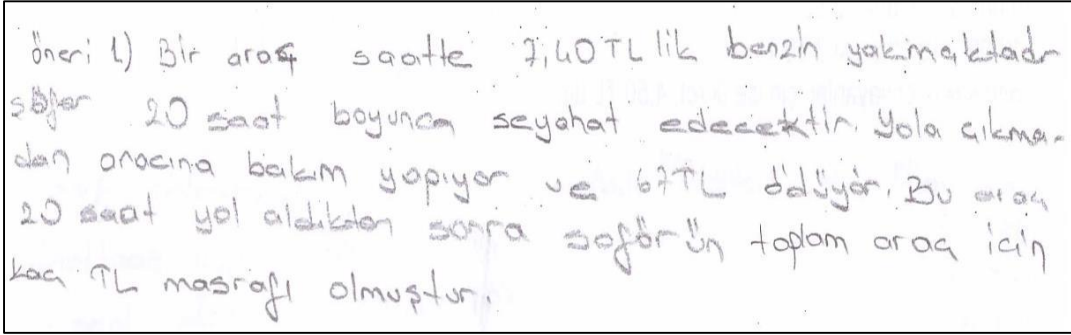 öneri 1) Bir araç saatte 7,40 TL lik benzin yakmaktadır
şöför 20 saat boyunca seyahat edecektir. Yola çıkma-
dan aracına bakım yapıyor ve 67TL ödüyor. Bu araç
20 saat yol aldıktan sonra şoför'ün toplam araç için
kaç TL masrafı olmuştur.